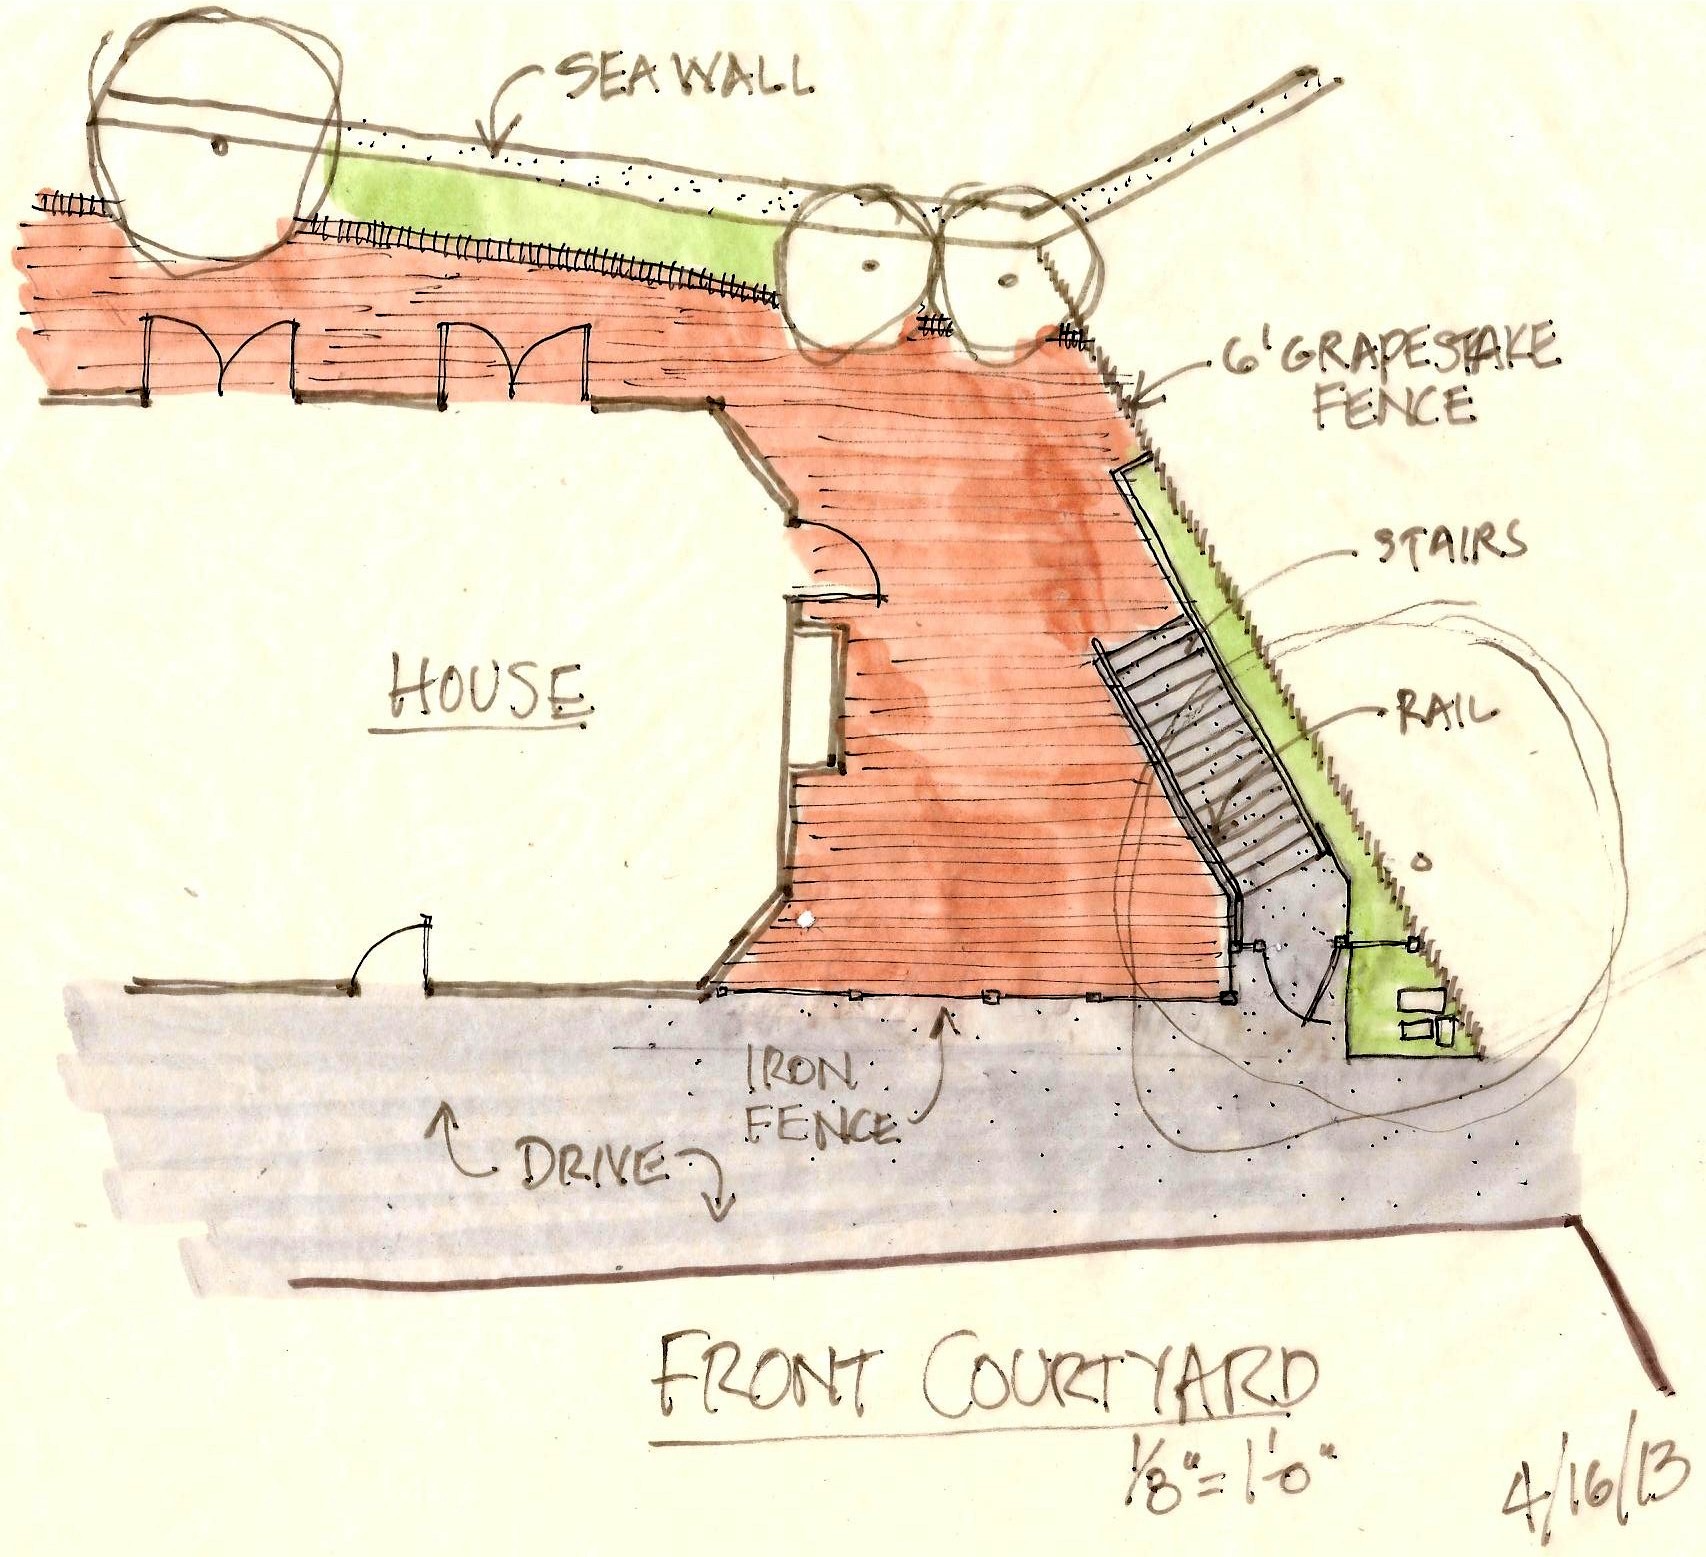 SEA WALL
6' GRAPESTAKE
FENCE
STAIRS
HOUSE
RAIL
IRON
FENCE
DRIVE
FRONT COURTYARD
1/8" = 1'0"
4/16/13